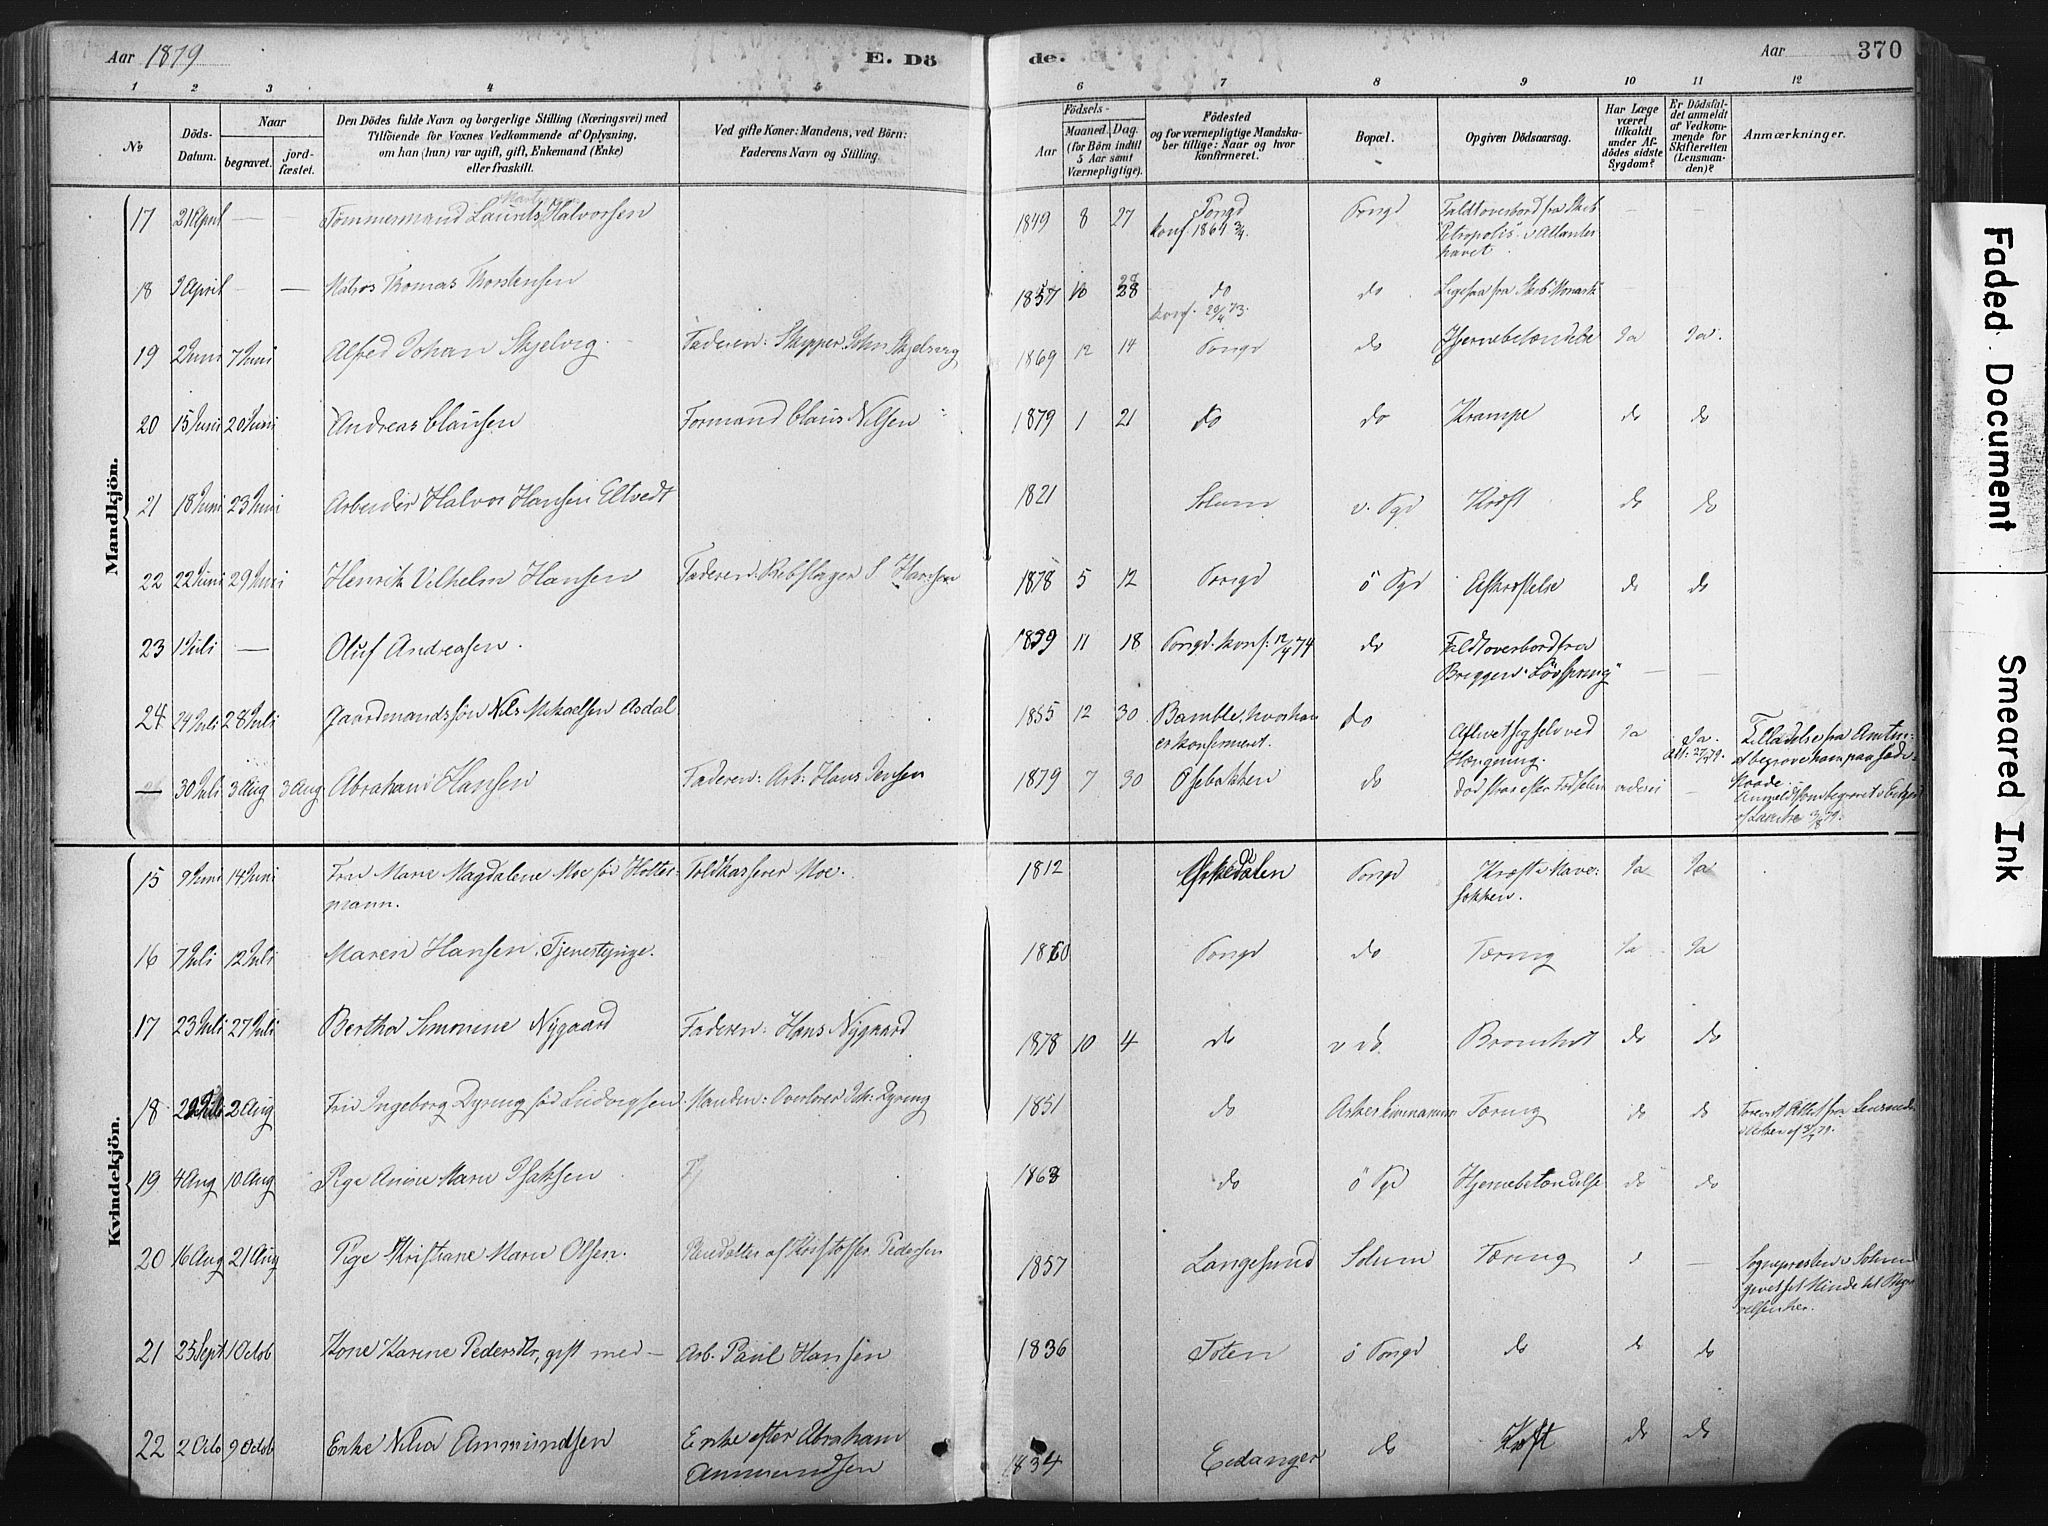 Aar 1879
E. Dö
de.
Aar
370
1 2 3 4 5 6 7 8 9 10 11 12
No
Döds-
Datum.
Naar
begravet.
jord-
fæstet.
Den Dödes fulde Navn og borgerlige Stilling (Næringsvei) med
Tilföiende for Voxnes Vedkommende af Oplysning,
om han (hun) var ugift, gift, Enkemand (Enke)
eller fraskilt.
Ved gifte Koner: Mandens, ved Börn:
Faderens Navn og Stilling.
Födsels-
Aar
Maaned.
Dag.
(for Börn indtil
5 Aar samt
Værnepligtige).
Födested
og for værnepligtige Mandska-
ber tillige: Naar og hvor
konfirmeret.
Bopæl.
Opgiven Dödsaarsag.
Har Læge
været
tilkaldt
under Af-
dödes sidste
Sygdom?
Er Dödsfal-
det anmeldt
af Vedkom-
mende for
Skifteretten
(Lensman-
den)?
Anmærkninger.
Mandkjön.
17 21 April — Tømmermand Laurits Halvorsen 1849 8 27 Porsgd Porsgd Faldt overbord fra Skib
konf. 1864 Petropolis i Atlanter
havet
18 April — — Matros Thomas Thorstensen 1857 10 28 do do Ligesaa fra Skib Monark
konf. 20/4 73.
19 2 Juni 7 Juni Alfred Johan Skjelvig Faderen: Skipper John Skjelvig 1869 12 14 Porsgd do Hjernebetændelse Ja Ja.
20 15 Juni 20 Juni Andreas Clausen Formand Claus Nilsen 1879 1 21 do do Krampe do do
21 18 Juni 23 Juni Arbeider Halvor Hansen Eltvedt 1821 Solum v. Pgd Kræft do do
22 22 Juni 29 Juni Henrik Vilhelm Hansen Faderen: Rebslager S. Hansen 1878 5 12 Porsgd ö Pgd Afkræftelse do do
23 1 Juli — Oluf Andreasen. 1859 11 18 Porsgd. konf: 12/4 74 do Faldt overbord fra
Briggen "Løvspring" — —
24 24 Juli 28 Juli Gaardmandssøn Nils Mikaelsen Asdal 1855 12 30 Bamble, hvor han do Aflivet sig selv ved Ja Ja. Tilladelse fra Amtm:
er konfirmeret. Hængning.
— 30 Juli 3 Aug 3 Aug Abraham Hansen Faderen: Arb. Hans Jensen 1879 7 30 Osebakken do Død strax efter Fødselen —
Kvindekjön.
15 9 Juni 14 Juni Fru Marie Magdalene Moe fød Holter- Toldkasserer Moe. 1812 Porsgd Kræft i Mave- Ja Ja
mann. sækken.
16 7 Juli 12 Juli Maren Hansen, Tjenestepige. 1860 Porsgd do Tæring Ja Ja
17 23 Juli 27 Juli Bertha Simonine Nygaard Faderen: Hans Nygaard 1878 10 4 do v do. Bronchit do do
18 2 Aug Fru Ingeborg Dyring fød Ludvigsen Manden: Overlærer Dyring 1851 do Asker Tæring do do
19 4 Aug 10 Aug Pige Anne Marie Isaksen 1868 do ö Pgd Hjernebetændelse do do
20 16 Aug 21 Aug Pige Kristiane Marie Olsen. Pleiedatter af Kristoffer Pedersen 1857 Langesund Solum Tæring — Sognepresten i Solum
givet sit Minde til Begra-
velsen her.
21 25 Sept 1 Octob Kone Karine Pedersdtr, gift med — Arb. Paul Hansen 1836 Toten ö Porsgd do do do
22 2 Octo 9 Octob Enke Nilia Ammundsen Enke efter Abraham 1834 Eidanger do Kræft do do
Ammundsen
Faded Document
Smeared Ink